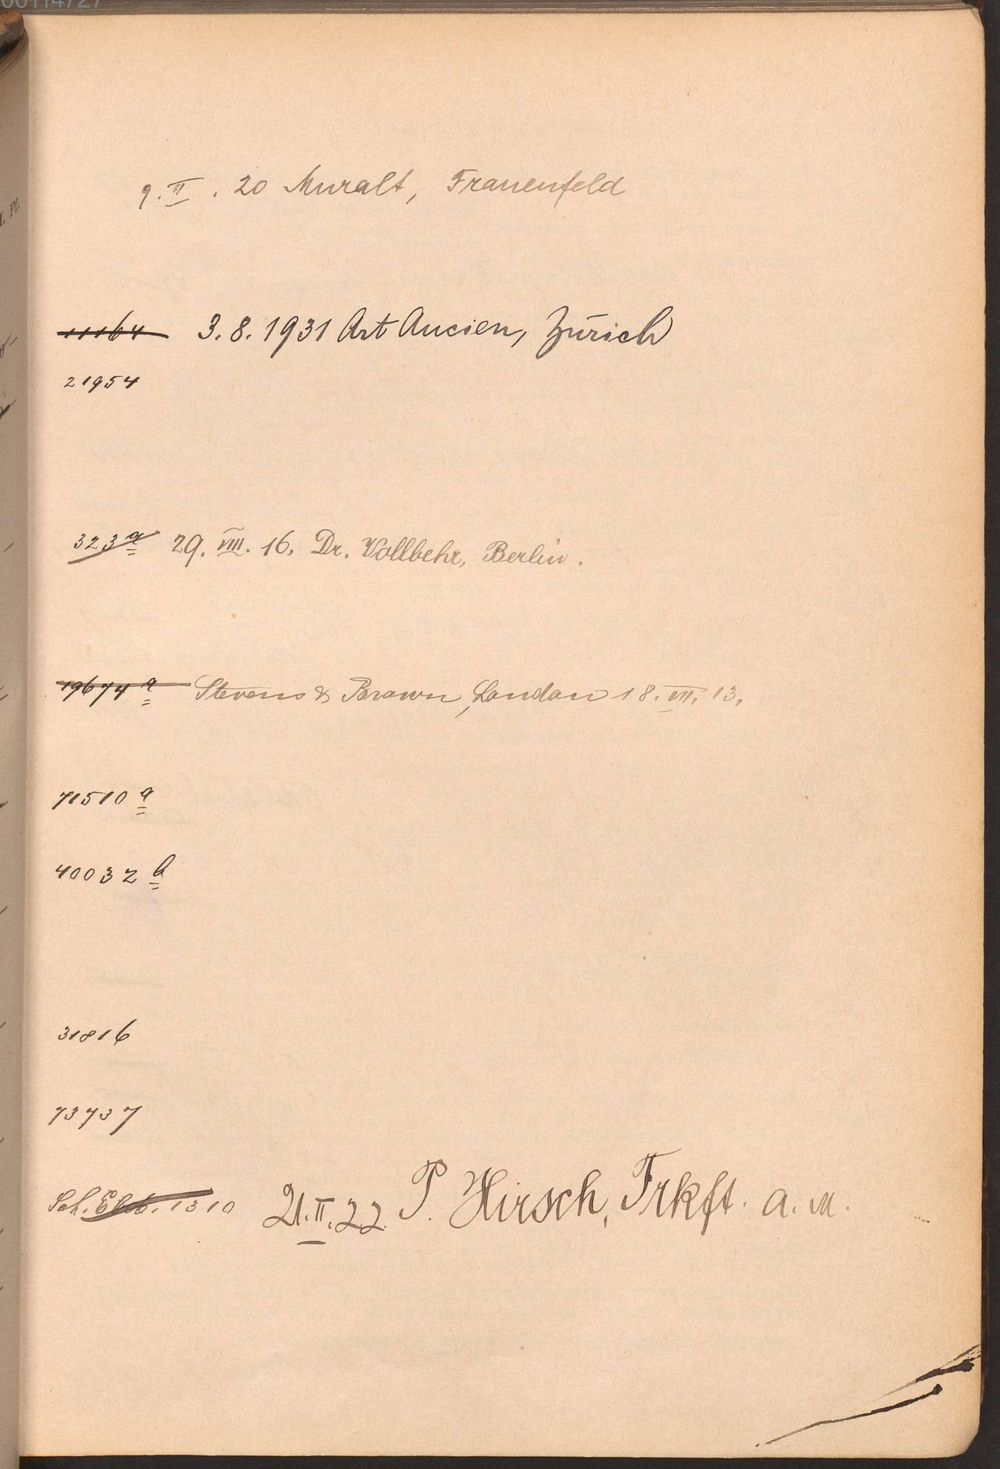 9. II. 20 Muralt, Frauenfeld
11164 3.8.1931 Art Ancien, Zürich
21954
323a 29. VIII. 16. Dr. Vollbehr, Berlin.
19674a Stevens & Brown, London 18. VII. 13.
71510a
40032b
31816
73737
Sch. 1310 21.II.22 P. Hirsch, Frkft. a. M.